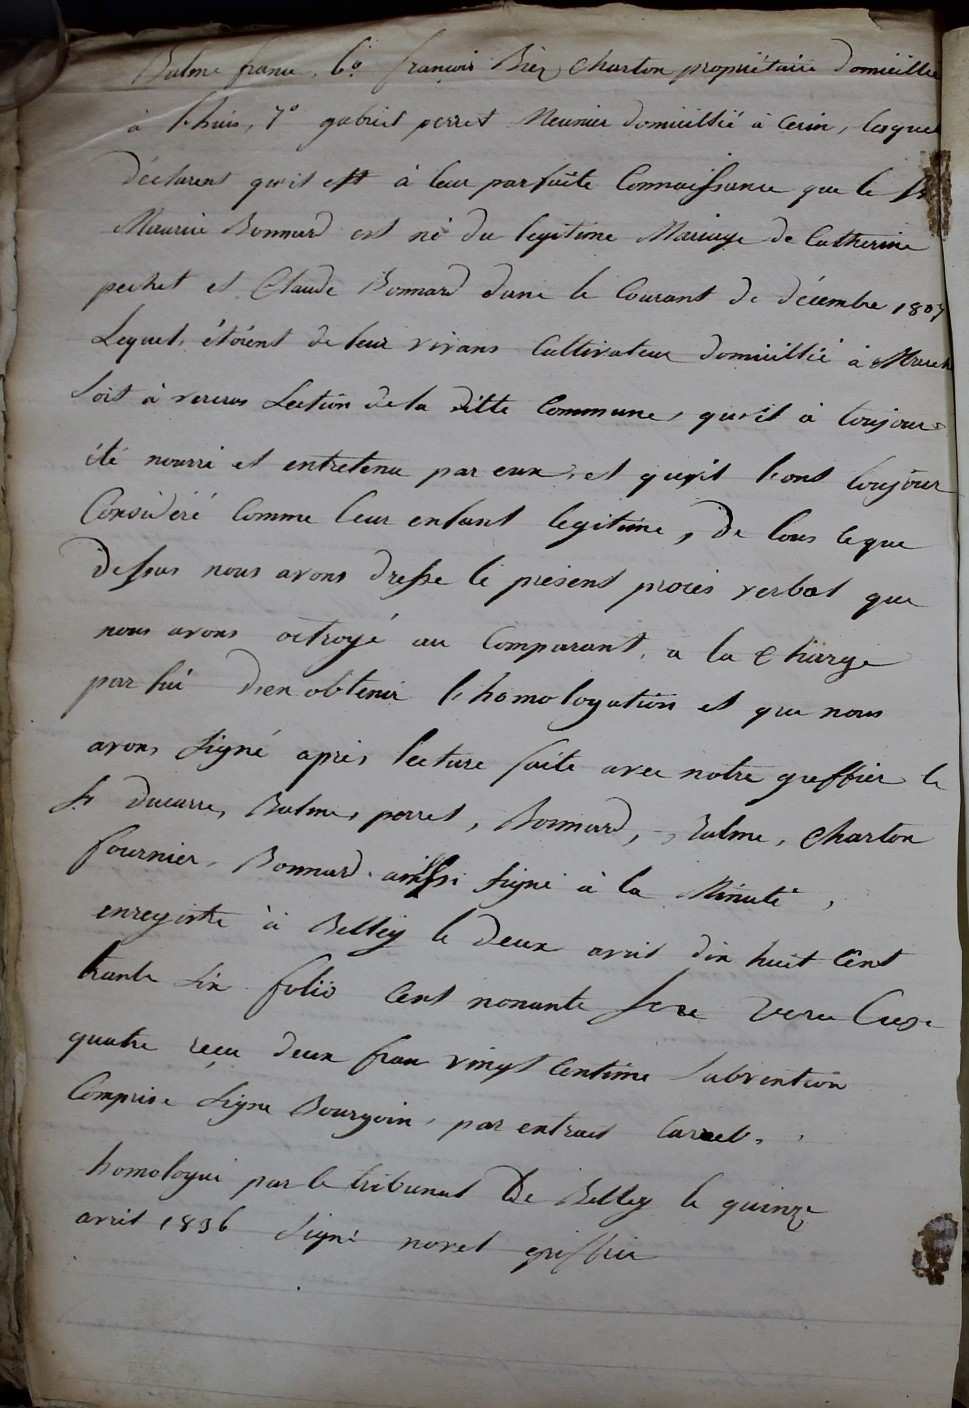 Balme franc, 6° françois Bin Charton propriétaire domicillié
à Lhuis, 7° gabriel perret Meunier domicillié à Cerin, lesquel
déclarent quil est à leur parfaite Connaissance que le Sr
Maurice Bonnard est né du legitime Mariage de Catherine
pechet et Claude Bonnard dans le Courant de décembre 1807
Lequel, étoient de leur vivans Cultivateur domicillié à March
soit à Section de la ditte Commune, qu'il à toujour
été nourri et entretenu par eux, et qu'il l'ont toujour
Considéré Comme leur enfant legitime, De tous ceque
Dessus nous avons dresse le présent procès verbal que
nous avons octroyé au Comparant, a la Charge
par lui d'en obtenir l'homologation et que nous
avons signé après lecture faite avec notre greffier le
Sr ducarre, Balme, perret, Bonnard, Balme, Charton
fournier, Bonnard. ainssi signé à la Minute,
enregistré à Belley le deux avril dix huit Cent
trante six folio Cent nonante verso Case
quatre reçu deux fran vingt Centime Subvention
Comprise signe Bourgoin, par extrait
homologué par le tribunal De Belley le quinze
avril 1836 signé noret greffier